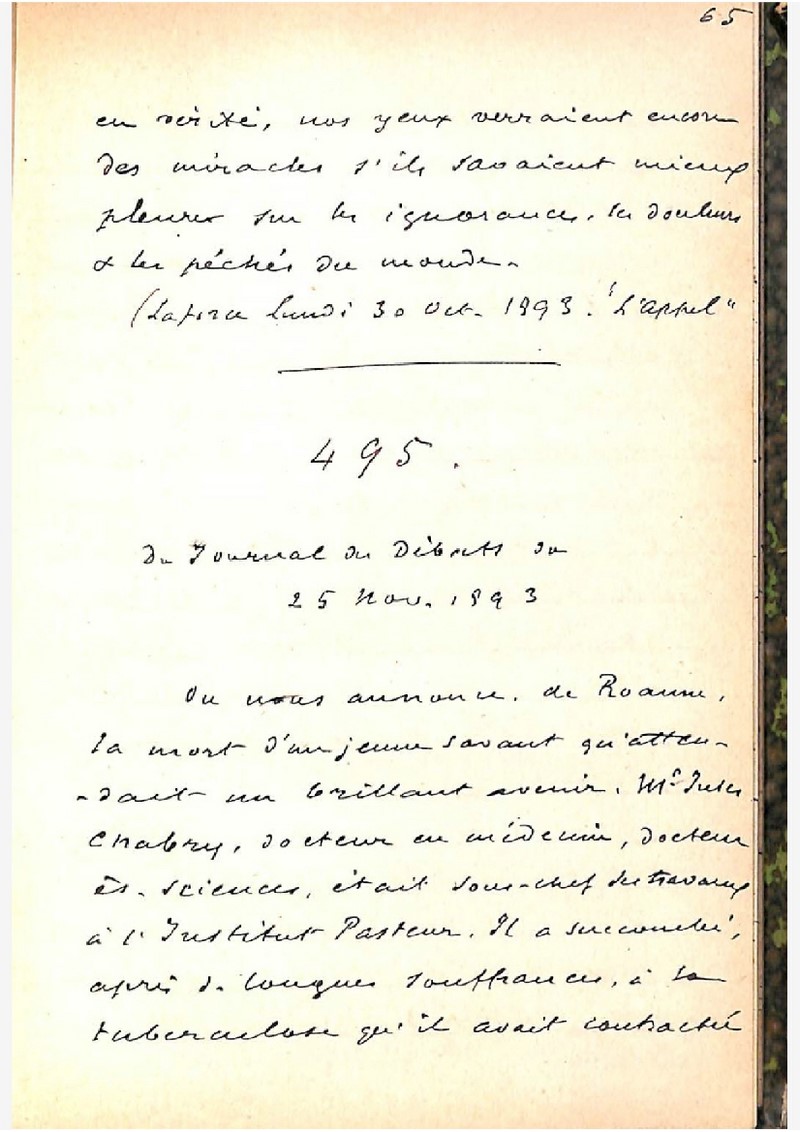 65
en vérité, nos yeux verraient encore
des miracles s'ils savaient mieux
pleurer sur les ignorances, les douleurs
& les péchés du monde.
lundi 30 Oct. 1893. "L'appel"
495.
Du Journal des Débats du
25 Nov. 1893
On nous annonce, de Roanne,
la mort d'un jeune savant qu'atten-
-dait un brillant avenir. Mr Jules
Chabry, docteur en médecine, docteur
ès-sciences, était sous-chef des travaux
à l'Institut Pasteur. Il a succombé,
après de longues souffrances, à la
tuberculose qu'il avait contracté